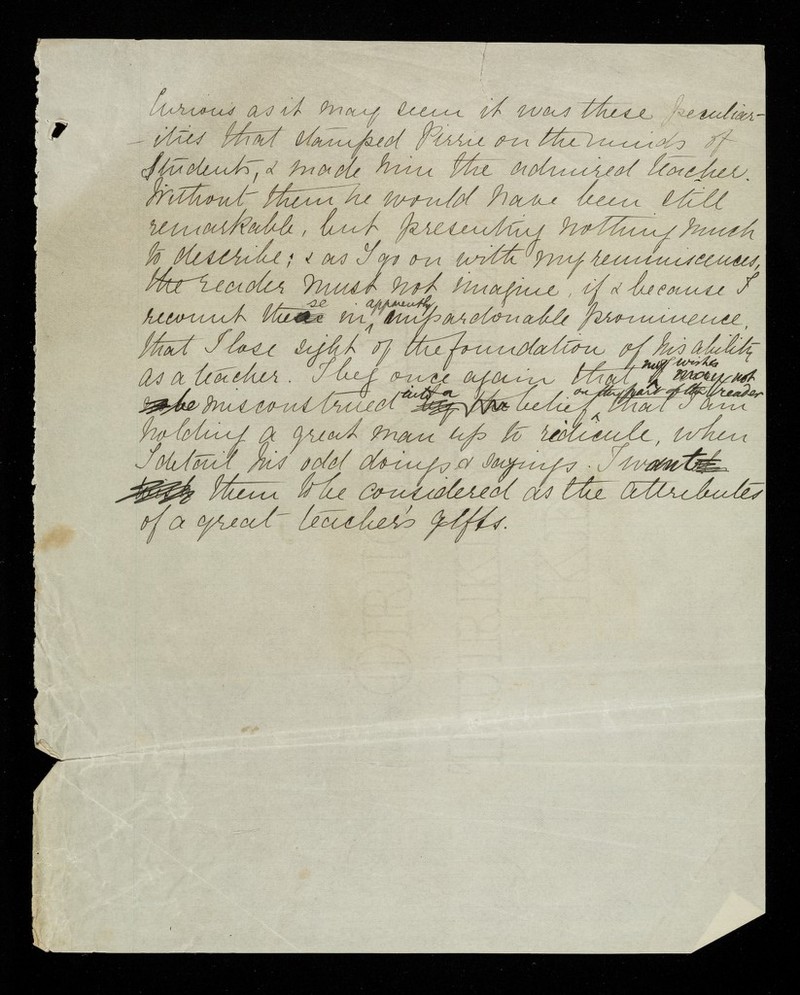 Curious as it may seem it was these peculiar-
-ities that stamped Pirrie on the minds of
Students, & made him the admired teacher.
Without them he would have been still
remarkable, but presenting nothing much
to describe; & as I go on with my reminiscences,
the reader must not imagine, if & because I
recount these in apparently unpardonable prominence,
that I lose sight of the foundation of his ability
as a teacher. I beg once again that my wishes may not
be misconstrued into a belief on the part of the reader that I am
holding a great man up to ridicule, when
I detail his odd doings & sayings. I want
them to be considered as the attributes
of a great teacher's gifts.